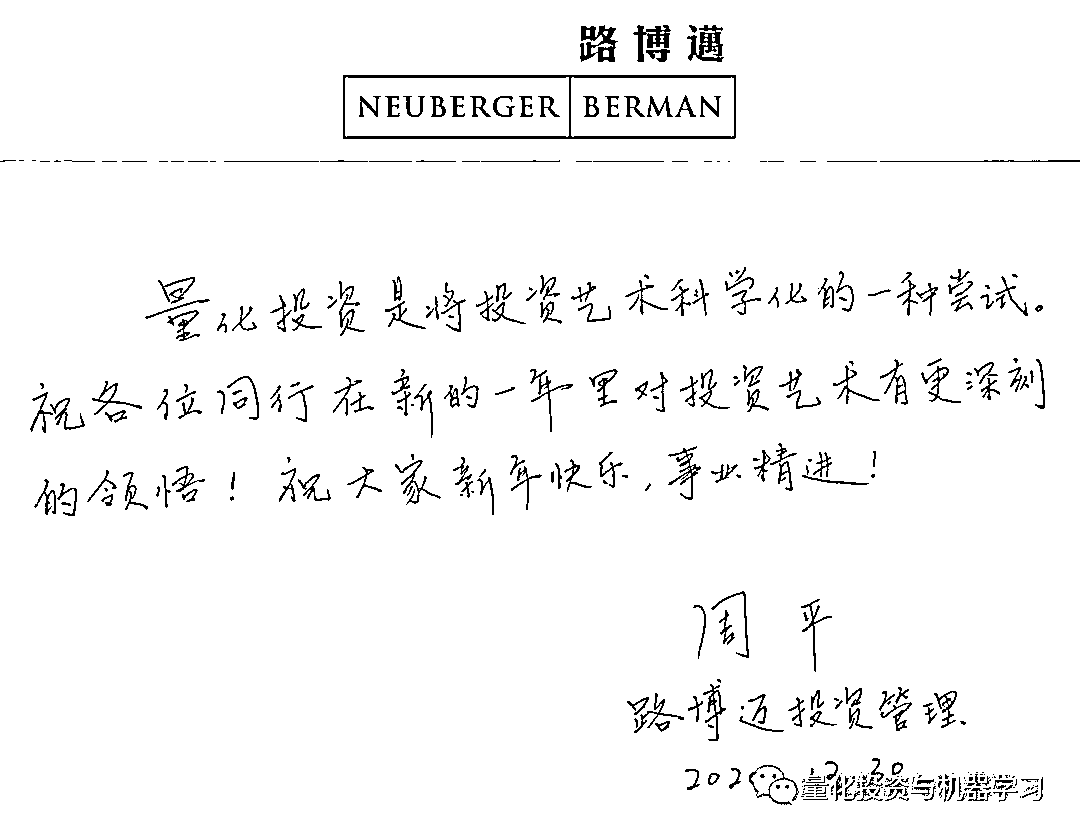 路博邁
NEUBERGER BERMAN
量化投资是将投资艺术科学化的一种尝试。
祝各位同行在新的一年里对投资艺术有更深刻
的领悟！祝大家新年快乐，事业精进！
周平
路博迈投资管理
202 12.30
量化投资与机器学习